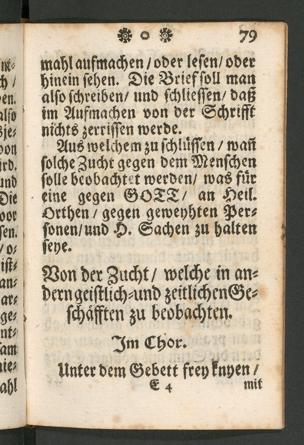 ❁ o ❁ 79
mahl aufmachen / oder lesen / oder
hinein sehen. Die Brief soll man
also schreiben / und schliessen / daß
im Aufmachen von der Schrifft
nichts zerrissen werde.
Aus welchem zu schlüssen / wañ
solche Zucht gegen dem Menschen
solle beobachtet werden / was für
eine gegen GOTT / an Heil.
Orthen / gegen geweyhten Per-
sonen / und H. Sachen zu halten
seye.
Von der Zucht / welche in an-
dern geistlich- und zeitlichen Ge-
schäfften zu beobachten.
Im Chor.
Unter dem Gebett frey knyen /
E 4 mit